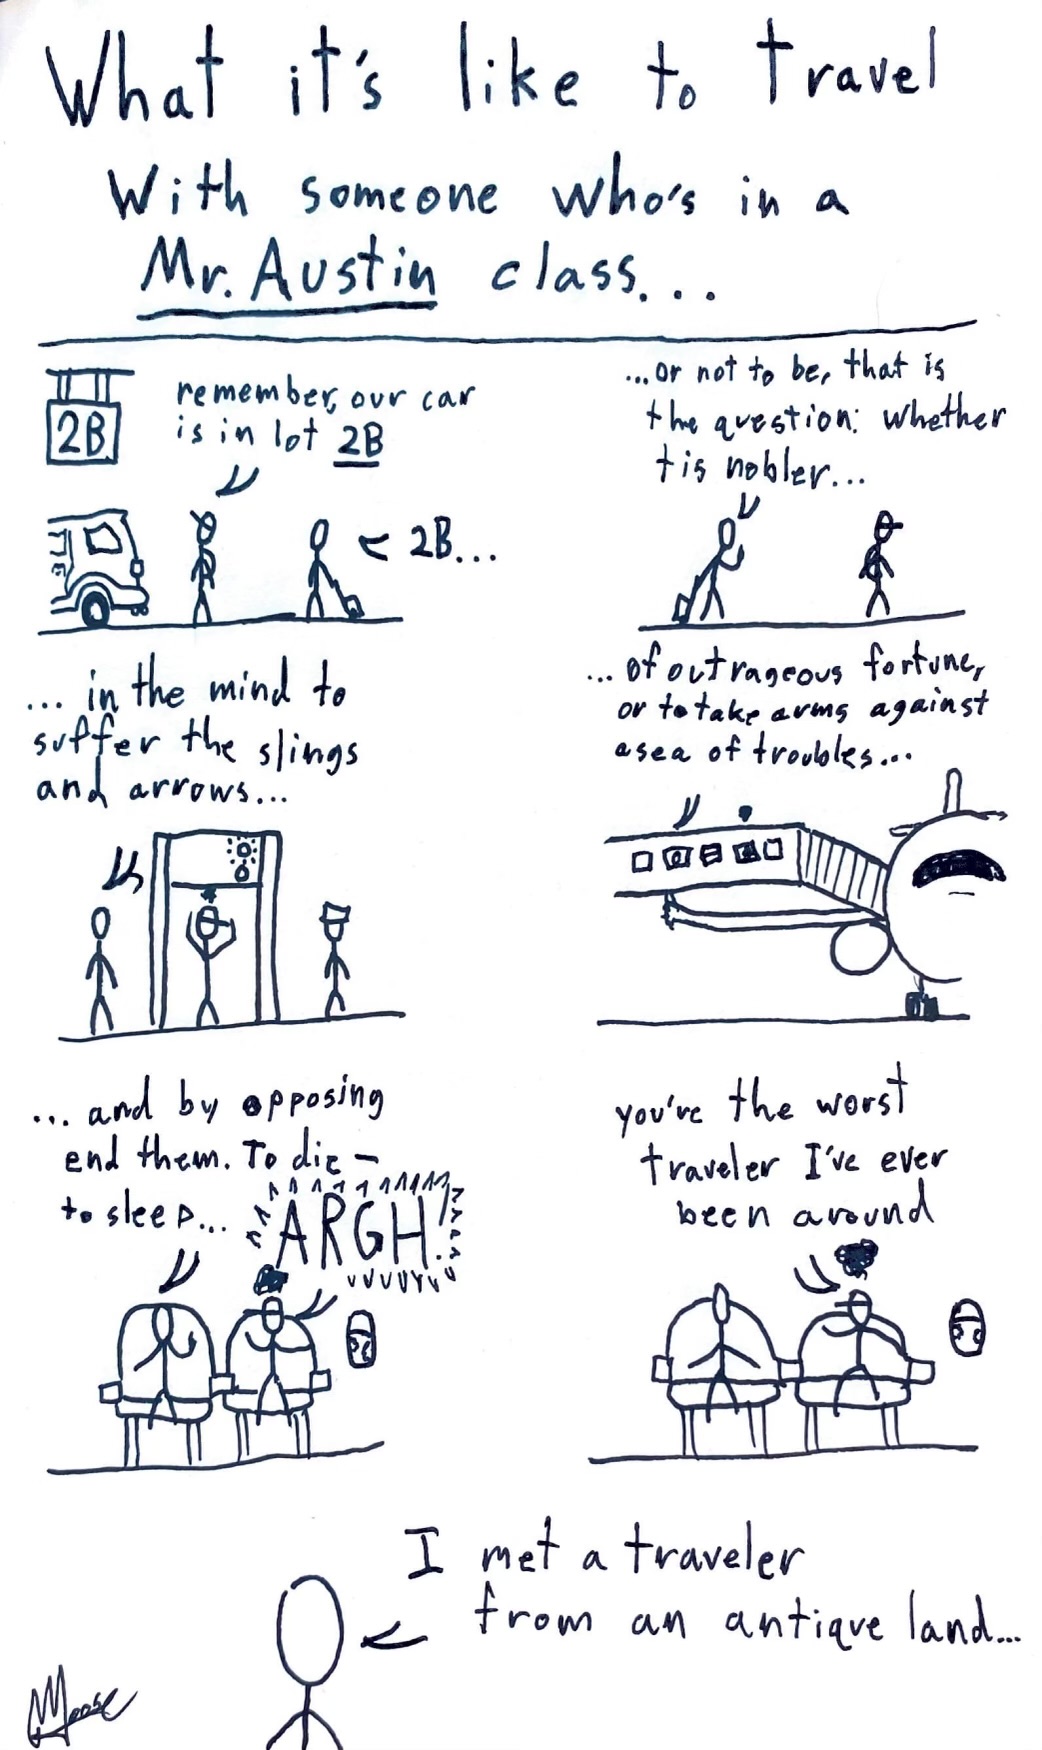 What it's like to travel
With someone who's in a
Mr. Austin class...
2B
remember, our car
is in lot 2B
2B...
...or not to be, that is
the question: whether
tis nobler...
... in the mind to
suffer the slings
and arrows...
... of outrageous fortune,
or to take arms against
a sea of troubles...
... and by opposing
end them. To die –
to sleep...
ARGH!
you've the worst
traveler I've ever
been around
I met a traveler
from an antique land...
Moose